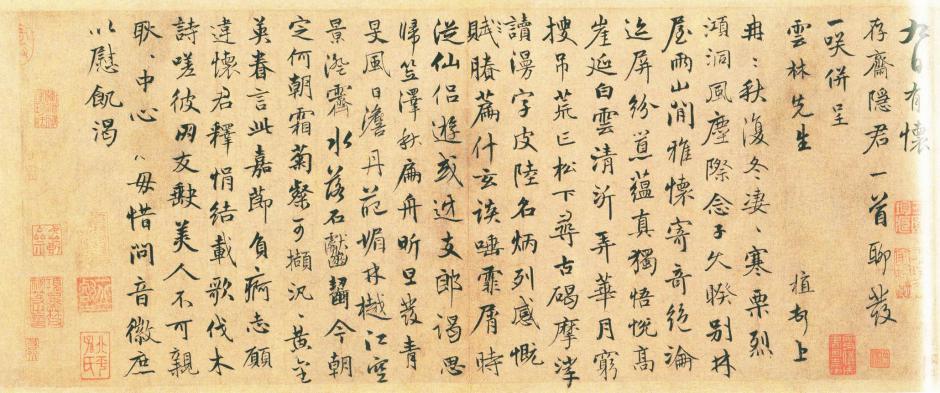 九日有懷
存齋隱君一首聊發
一咲併呈
雲林先生　植上
冉〻秋復冬淒〻寒栗烈
澒洞風塵際念子久睽別林
屋兩山間雅懷寄奇絕淪
迹屏紛囂蘊真獨悟悅高
崖延白雲清沂弄華月窮
搜吊荒亡松下尋古碣摩挲
讀漫字皮陸名炳列感慨
賦賸篇什玄談唾霏屑時
從仙侶遊或迓支郎謁思
歸笠澤秋扁舟昕旦發青
旻風日澹丹葩媚林樾江空
景澄霽水落石獻齧今朝
定何朝霜菊粲可擷汎〻黃金
英眷言此嘉節負痾志願
違懷君釋悁結載歌伐木
詩嗟彼朋友缺美人不可親
耿〻中心〻毋惜問音徽庶
以慰飢渴